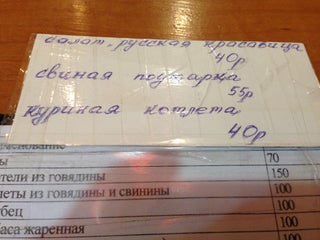 салат „русская красавица
40р
свиная поджарка
55р
куриная котлета
40р
70
из говядины 150
из говядины и свинины 100
100
жаренная 100
100